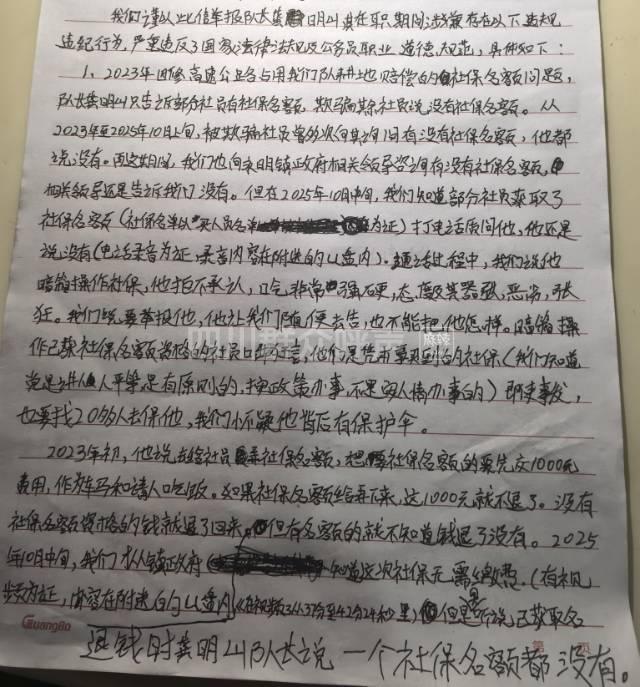 我们谨以此信举报队长龚明山其在职期间涉嫌存在以下违规
违纪行为,严重违反了国家法律法规及公务员职业道德规范,具体如下:
1、2023年因修高速公路占用我们队和土地赔偿的社保名额问题,
队长龚明山只告诉部分社员有社保名额,欺骗其余社员说没有社保名额。从
2023年至2025年10月上旬,被欺骗社员曾多次问其询问有没有社保名额,他都
说没有。而这期间,我们也向永明镇政府相关领导咨询有没有社保名额,
相关领导还是告诉我们没有。但在2025年10月中旬,我们知道部分社员获取了
社保名额(社保名单以买人员名单为证)打电话质问他,他还是
说没有(电话录音为证,录音内容在附送的U盘内)。通话过程中,我们说他
暗箱操作社保,他拒不承认,口气非常强硬,态度甚嚣张,恶劣,张
狂。我们说要举报他,他让我们随便去告,也不能把他怎样。暗箱操
作已获社保名额资格的社员口出狂言,他们是凭本事买到的社保(我们知道
党是讲人人平等是有原则的,按政策办事,不是因人情办事的)即使事发,
也要找20多人去保他,我们怀疑他背后有保护伞。
2023年初,他说去给社员弄社保名额,想要社保名额的要先交1000元
费用,作为车马和请人吃饭。如果社保名额给弄下来,这1000元就不退了。没有
社保名额资格的钱就退了回来,但有名额的就不知道钱退了没有。2025
年10月中旬,我们从镇政府知道这次社保无需缴费。(有视
频为证,内容在附送的U盘内(在视频34分37秒至42分24秒里)但是说已获取名
GuangBo
退钱时龚明山队长说一个社保名额都没有。